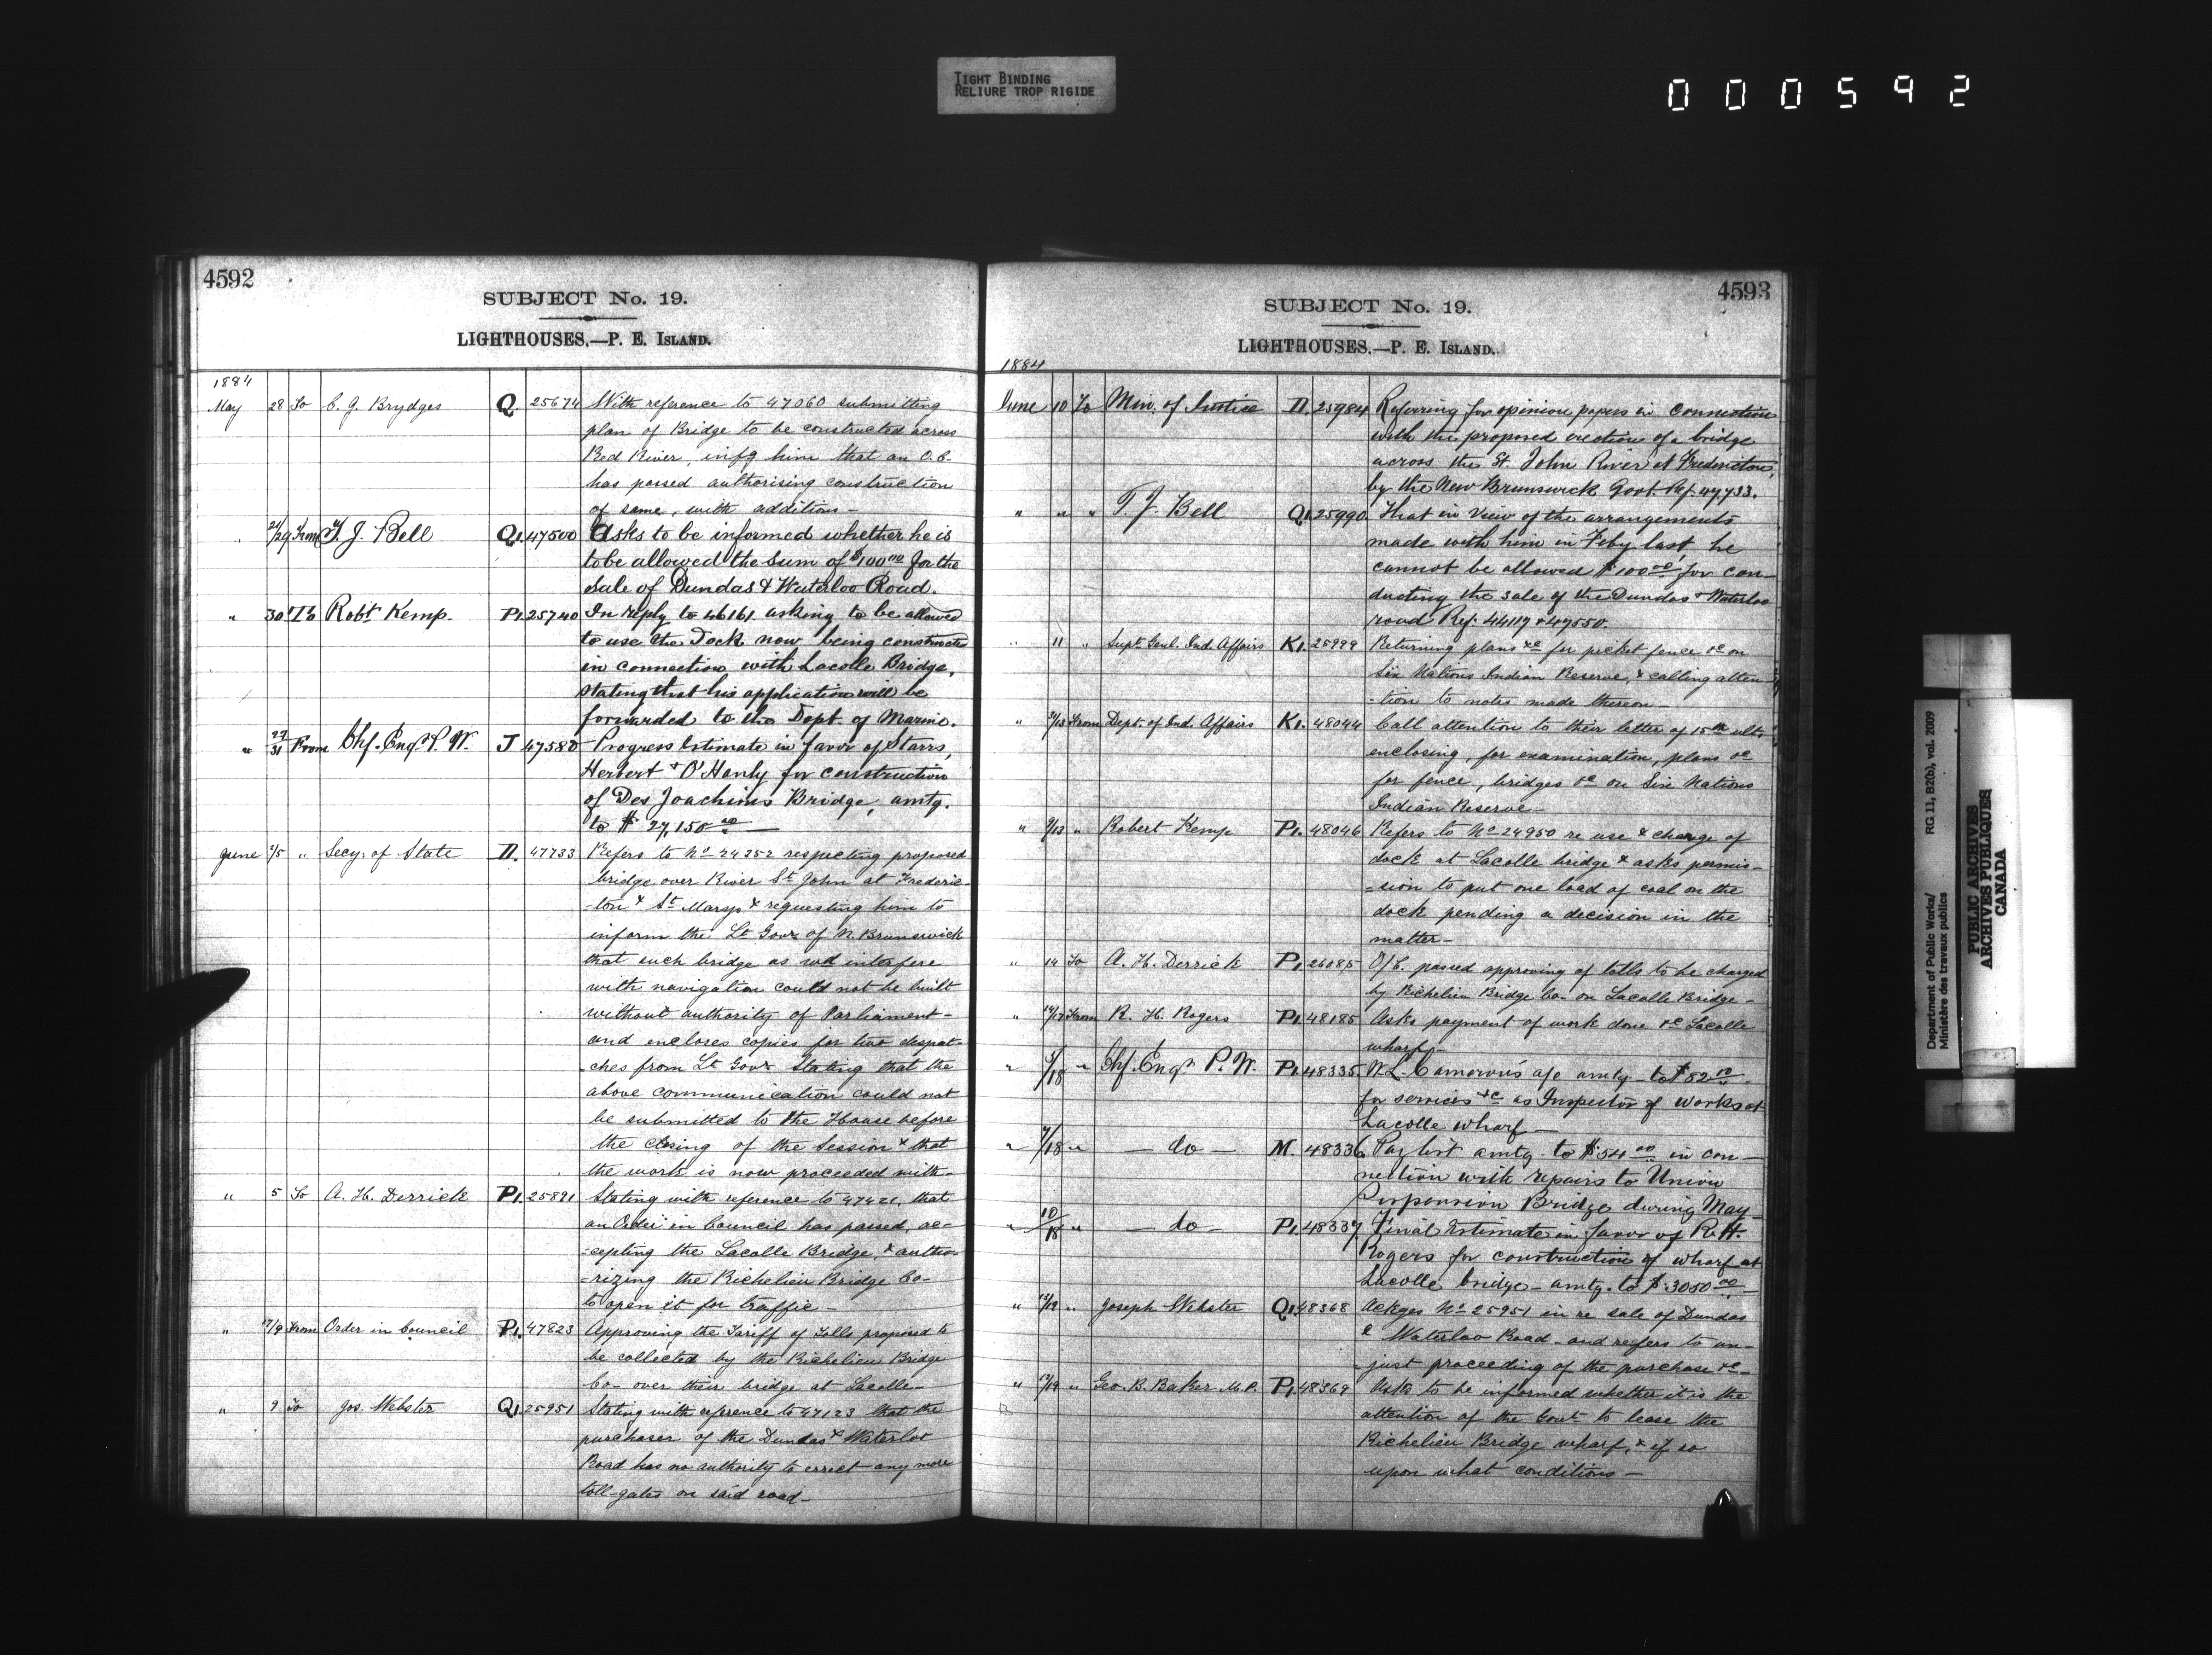 TIGHT BINDING
RELIURE TROP RIGIDE
000592
4592
SUBJECT No. 19.
LIGHTHOUSES.—P. E. ISLAND.
1884
May 28 To C. J. Brydges Q. 25674 With reference to 47060 submitting
plan of Bridge to be constructed across
Red River, infg him that an O.C.
has passed authorising construction
of same, with addition—
" 21/29 From T. J. Bell Q1. 47500 Asks to be informed whether he is
to be allowed the Sum of $100.00 for the
Sale of Dundas & Waterloo Road.
" 30 To Robt. Kemp. P1. 25740 In reply to 46161 asking to be allowed
to use the Dock now being constructed
in connection with Lacolle Bridge,
stating that his application will be
forwarded to the Dept. of Marine.
" 27/31 From Chf. Engr. P. W. J 47580 Progress Estimate in favor of Starrs,
Herbert & O'Hanly for construction
of Des Joachims Bridge, amtg.
to $27,150.00—
June 2/5 " Secy. of State II. 47733 Refers to No 24252 respecting proposed
bridge over River St. John at Frederic-
-ton & St. Marys & requesting him to
inform the Lt. Govr. of N. Brunswick
that such bridge as wd interfere
with navigation could not be built
without authority of Parliament—
and encloses copies for two despat-
-ches from Lt. Govr. stating that the
above communication could not
be submitted to the House before
the closing of the Session & that
the work is now proceeded with—
" 5 To A. H. Derrick P1. 25891 Stating with reference to 47421, that
an Order in Council has passed, ac-
-cepting the Lacolle Bridge, & autho-
-rizing the Richelieu Bridge Co-
to open it for traffic—
" 7/9 From Order in Council P1. 47823 Approving the Tariff of Tolls proposed to
be collected by the Richelieu Bridge
Co- over their bridge at Lacolle—
" 9 To Jos. Webster Q1. 25951 Stating with reference to 47123 that the
purchaser of the Dundas & Waterloo
Road has no authority to errect any more
toll-gates on said road—
4593
SUBJECT No. 19.
LIGHTHOUSES.—P. E. ISLAND.
1884
June 10 To Min. of Justice II. 25984 Referring for opinion papers in connection
with the proposed erection of a bridge
across the St. John River at Fredericton,
by the New Brunswick Govt. Ref. 47,733.
" " " T. J. Bell Q1. 25990 That in view of the arrangements
made with him in Feby last, he
cannot be allowed $100.00 for con-
ducting the sale of the Dundas & Waterloo
road Ref: 44117 & 47550.
" 11 " Supt. Genl. Ind. Affairs K1. 25999 Returning plans &c for picket fence &c on
Six Nations Indian Reserve, & calling atten-
-tion to notes made thereon—
" 9/13 From Dept. of Ind. Affairs K1. 48044 Call attention to their letter of 15th ult.
enclosing, for examination, plans &c
for fence, bridges &c on Six Nations
Indian Reserve—
" 9/13 " Robert Kemp P1. 48046 Refers to No 24950 re use & charge of
dock at Lacolle bridge & asks permis-
-sion to put one load of coal on the
dock pending a decision in the
matter—
" 14 To A. H. Derrick P1. 26085 O/C. passed approving of tolls to be charged
by Richelieu Bridge Co- on Lacolle Bridge—
" 14/17 From R. H. Rogers P1. 48185 Asks payment of work done &c Lacolle
wharf—
" 5/18 " Chf. Engr. P. W. P1. 48335 W. L. Cameron's a/c amtg to $82.10
for services &c as Inspector of works at
Lacolle wharf—
" 7/18 " — do — M. 48336 Pay list amtg. to $54.00 in con-
nection with repairs to Union
Suspension Bridge during May
" 10/18 " — do — P1. 48337 Final Estimate in favor of R. H.
Rogers for construction of wharf at
Lacolle bridge—amtg. to $3050.00—
" 13/19 " Joseph Webster Q1. 48368 Ackges No 25951 in re sale of Dundas
& Waterloo Road—and refers to un-
-just proceeding of the purchase &c—
" 12/19 " Geo. B. Baker M.P. P1. 48369 Asks to be informed whether it is the
attention of the Govt. to lease the
Richelieu Bridge wharf, & if so
upon what conditions—
Department of Public Works/ RG 11, B2(b), vol. 2009
Ministère des travaux publics
PUBLIC ARCHIVES
ARCHIVES PUBLIQUES
CANADA